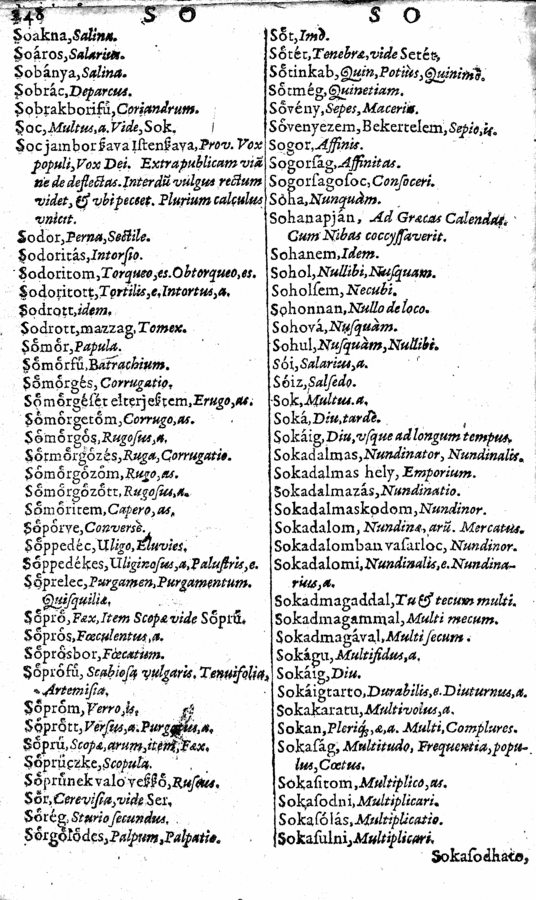 248 S O S O
Soakna, Salina.
Soáros, Salarius.
Sobánya, Salina.
Sobrác, Deparcus.
Sobrakborifű, Coriandrum.
Soc, Multus,a. Vide, Sok.
Soc jambor ßava Iſtenßava, Prov. Vox
populi, Vox Dei. Extrapublicam viã
ne de deflectas. Interdũ vulgus rectum
videt, & ubi peccet. Plurium calculus
vincit.
Sodor, Perna, Sectile.
Sodoritás, Intorſio.
Sodoritom, Torqueo,es. Obtorqueo,es.
Sodoritott, Tortilis,e, Intortus,a.
Sodrott, idem.
Sodrott, mazzag, Tomex.
Sőmőr, Papula.
Sőmőrfű, Batrachium.
Sőmőrgés, Corrugatio.
Sőmőrgéſét elterjeßtem, Erugo,as.
Sőmőrgetőm, Corrugo,as.
Sőmőrgős, Rugoſus,a.
Sőrmőrgőzés, Ruga, Corrugatio.
Sőmőrgőzőm, Rugo,as.
Sőmőrgőzőtt, Rugoſus,a.
Sőmőritem, Capero,as,
Sőpőrve, Conversè.
Sőppedéc, Uligo, Eluvies.
Sőppedékes, Uliginoſus,a, Paluſtris,e.
Sőprelec, Purgamen, Purgamentum.
Quiſquiliæ.
Sőprő, Fæx, Item Scopæ vide Sőprű.
Sőprős, Fœculentus,a.
Sőprősbor, Fœcatum.
Sőprőfű, Scabioſa vulgaris. Tenuifolia,
Artemiſia.
Sőprőm, Verro,is,
Sőprőtt, Verſus,a. Purgatus,a.
Sőprű, Scopæ,arum,item, Fæx.
Sőprűczke, Scopula.
Sőprűnek valo veßßő, Ruſcus.
Sőr, Cereviſia, vide Ser.
Sőrég, Sturio ſecundus.
Sőrgőlődes, Palpum, Palpatio.
Sőt, Imò.
Sőtét, Tenebræ, vide Setét,
Sőtinkab, Quin, Potiùs, Quinimò.
Sőtmég, Quinetiam.
Sővény, Sepes, Maceria.
Sővenyezem, Bekertelem, Sepio,is.
Sogor, Affinis.
Sogorſag, Affinitas.
Sogorſagoſoc, Conſoceri.
Soha, Nunquàm.
Sohanapján, Ad Græcas Calendas.
Cum Nibas coccyſſaverit.
Sohanem, Idem.
Sohol, Nullibi, Nuſquam.
Soholſem, Necubi.
Sohonnan, Nullo de loco.
Sohová, Nuſquàm.
Sohul, Nuſquàm, Nullibi.
Sói, Salarius,a.
Sóiz, Salſedo.
Sok, Multus.a.
Soká, Diu, tardè.
Sokáig, Diu, vſque ad longum tempus.
Sokadalmas, Nundinator, Nundinalis.
Sokadalmas hely, Emporium.
Sokadalmazás, Nundinatio.
Sokadalmaskodom, Nundinor.
Sokadalom, Nundinæ,arũ. Mercatus.
Sokadalomban vaſarloc, Nundinor.
Sokadalomi, Nundinalis,e. Nundina-
rius,a.
Sokadmagaddal, Tu & tecum multi.
Sokadmagammal, Multi mecum.
Sokadmagával, Multi ſecum.
Sokágu, Multifidus,a.
Sokáig, Diu.
Sokáigtarto, Durabilis,e. Diuturnus,a.
Sokakaratu, Multivolus,a.
Sokan, Pleriq;,æ,a. Multi, Complures.
Sokaſág, Multitudo, Frequentia, popu-
lus, Cœtus.
Sokaſitom, Multiplico,as.
Sokaſodni, Multiplicari.
Sokaſólás, Multiplicatio.
Sokaſulni, Multiplicari.
Sokaſodhato,